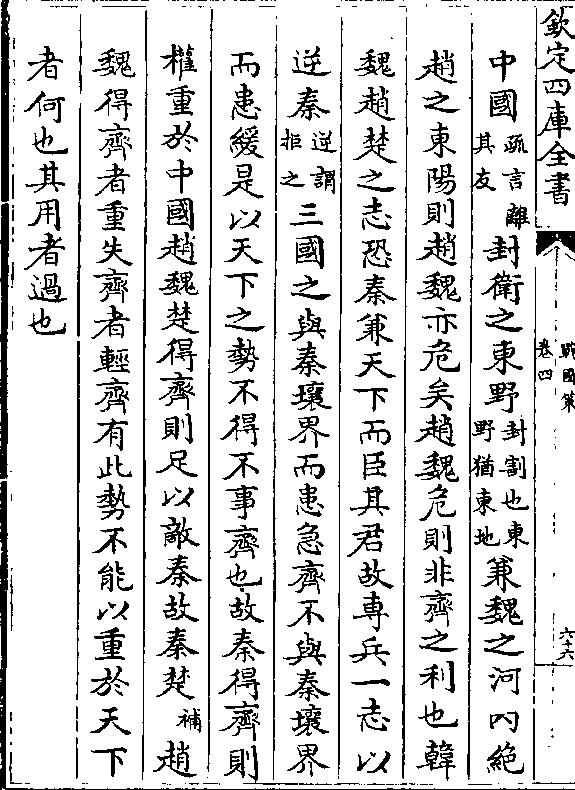 欽定四庫全書
戰國策
卷四
六十六
中國疏言離其友封衛之東野封割也東野猶東地兼魏之河内絶
趙之東陽則趙魏亦危矣趙魏危則非齊之利也韓
魏趙楚之志恐秦兼天下而臣其君故專兵一志以
逆秦逆謂拒之三國之與秦壤界而患急齊不與秦壤界
而患緩是以天下之勢不得不事齊也故秦得齊則
權重於中國趙魏楚得齊則足以敵秦故秦楚補趙
魏得齊者重失齊者輕齊有此勢不能以重於天下
者何也其用者過也